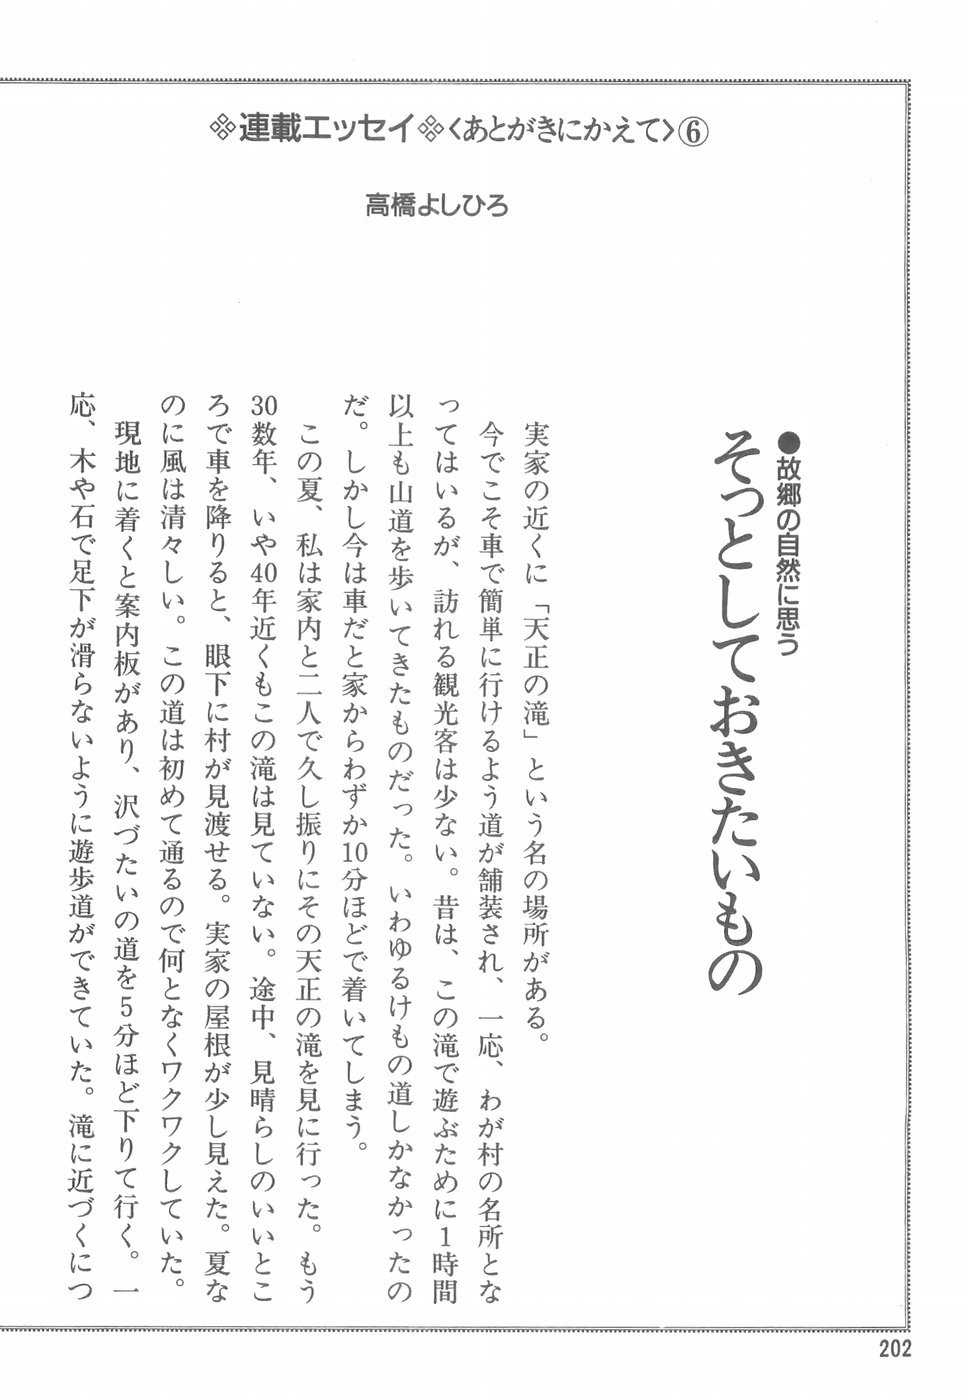 ❖連載エッセイ❖〈あとがきにかえて〉⑥
高橋よしひろ
●故郷の自然に思う
そっとしておきたいもの
実家の近くに「天正の滝」という名の場所がある。
今でこそ車で簡単に行けるよう道が舗装され、一応、わが村の名所とな
ってはいるが、訪れる観光客は少ない。昔は、この滝で遊ぶために1時間
以上も山道を歩いてきたものだった。いわゆるけもの道しかなかったの
だ。しかし今は車だと家からわずか10分ほどで着いてしまう。
この夏、私は家内と二人で久し振りにその天正の滝を見に行った。もう
30数年、いや40年近くもこの滝は見ていない。途中、見晴らしのいいとこ
ろで車を降りると、眼下に村が見渡せる。実家の屋根が少し見えた。夏な
のに風は清々しい。この道は初めて通るので何となくワクワクしていた。
現地に着くと案内板があり、沢づたいの道を5分ほど下りて行く。一
応、木や石で足下が滑らないように遊歩道ができていた。滝に近づくにつ
202